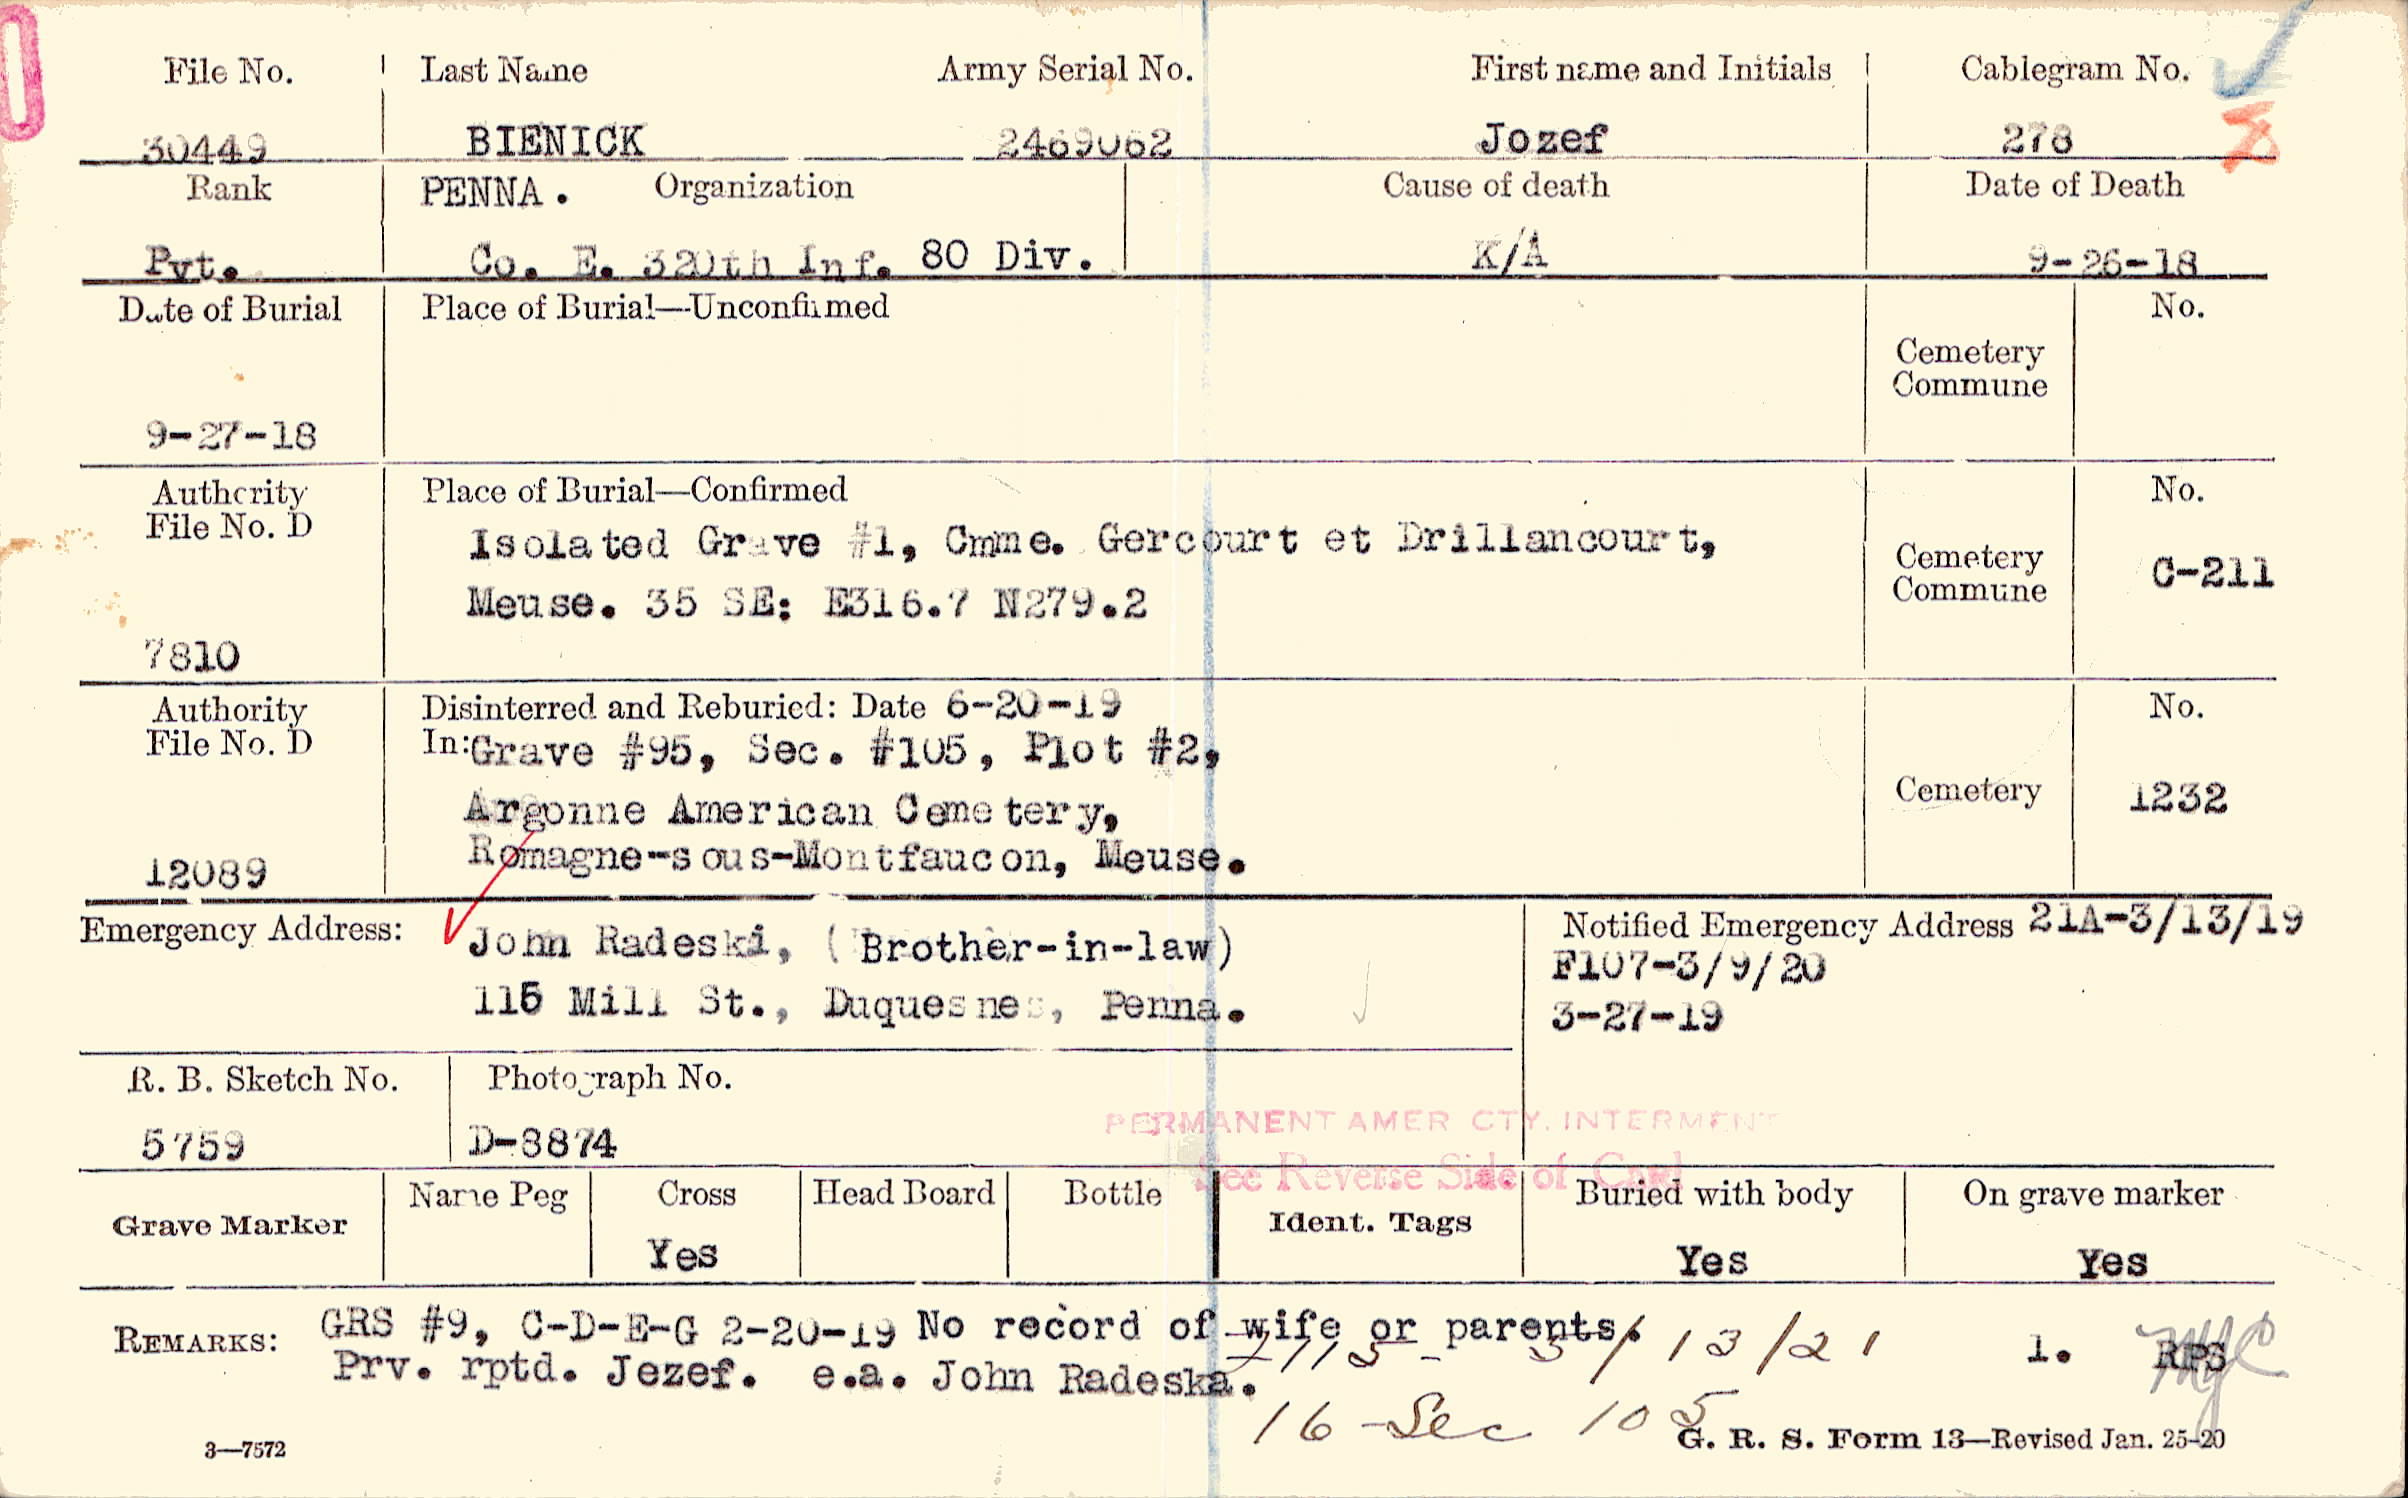 File No. Last Name Army Serial No. First name and Initials Cablegram No.
30449 BIENICK 2469062 Jozef 278
Rank PENNA. Organization Cause of death Date of Death
Pvt. Co. E. 320th Inf. 80 Div. K/A 9-26-18
Date of Burial Place of Burial—Unconfirmed No.
Cemetery
Commune
9-27-18
Authority Place of Burial—Confirmed No.
File No. D
Isolated Grave #1, Cmne. Gercourt et Drillancourt,
Cemetery
Commune C-211
Meuse. 35 SE: E316.7 N279.2
7810
Authority Disinterred and Reburied: Date 6-20-19 No.
File No. D In: Grave #95, Sec. #105, Plot #2,
Cemetery 1232
Argonne American Cemetery,
Romagne-sous-Montfaucon, Meuse.
12089
Emergency Address: John Radeski, (Brother-in-law) Notified Emergency Address 21A-3/13/19
F107-3/9/20
115 Mill St., Duquesne, Penna. 3-27-19
R. B. Sketch No. Photograph No.
5759 D-8874
PERMANENT AMER CTY. INTERMENT
See Reverse Side of Card
Grave Marker Name Peg Cross Head Board Bottle Ident. Tags Buried with body On grave marker
Yes Yes Yes
REMARKS: GRS #9, C-D-E-G 2-20-19 No record of wife or parents.
Prv. rptd. Jezef. e.a. John Radeska. 3/13/21 1. RPS
16-Sec 105
3—7572 G. R. S. Form 13—Revised Jan. 25-20